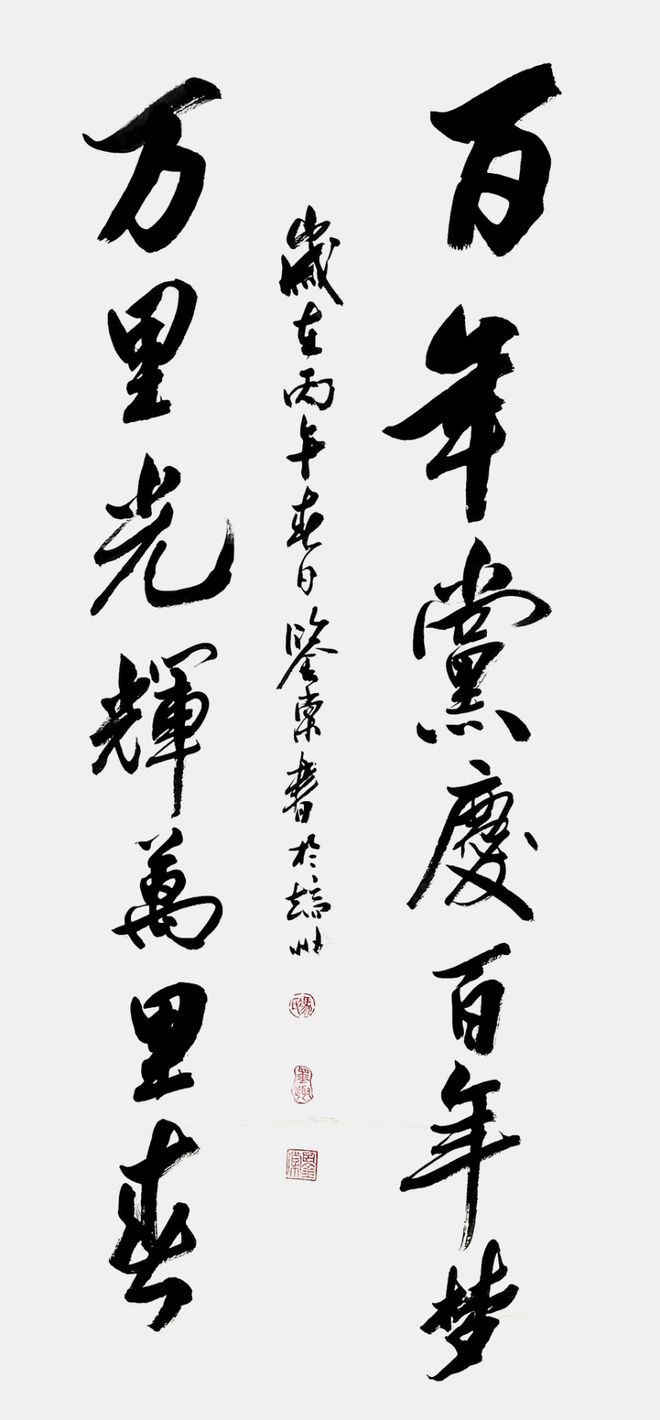 百年黨慶百年梦
万里光輝萬里春
歲在丙午春日鑒棠書於